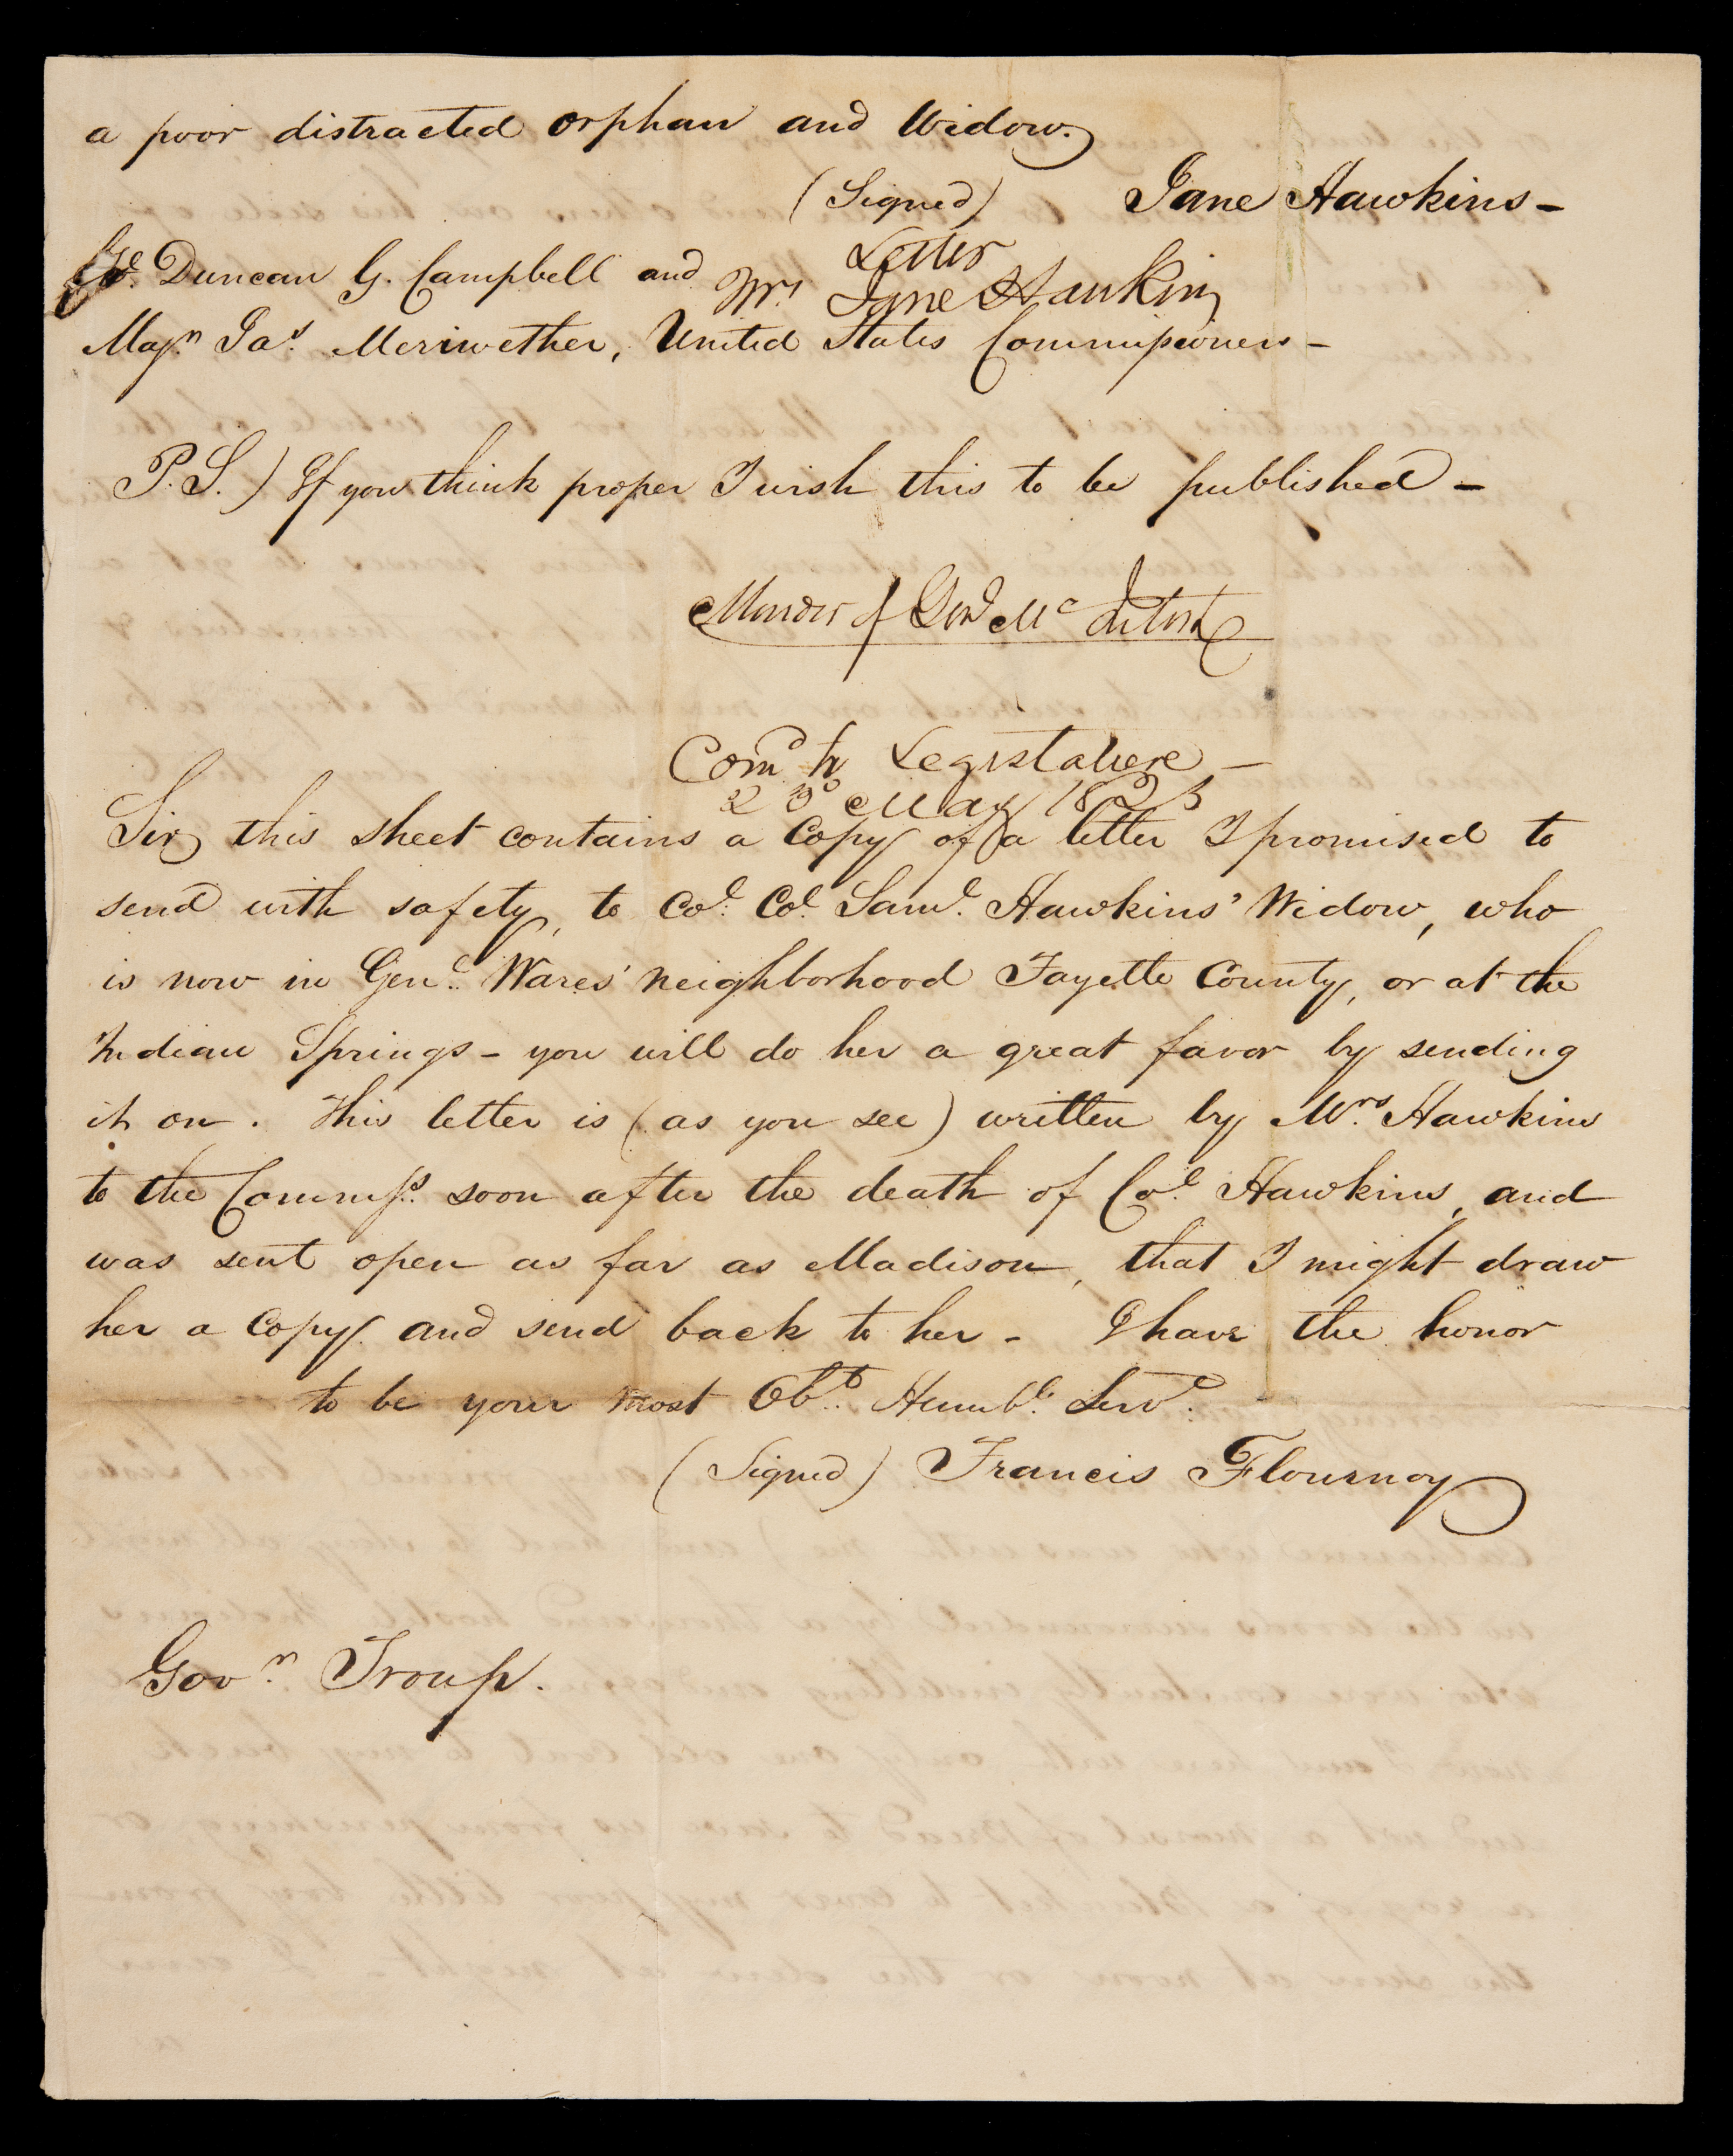 a poor distracted orphan and Widow.
(Signed) Jane Hawkins -
Col. Duncan G. Campbell and
Letter
Mrs Jane Hawkins
Majr. Jas. Meriwether, United States Commissioners -
P.S.) If you think proper I wish this to be published -
Murder of Genl McIntosh
Comd to Legislature -
23d May 1825
Sir, this sheet contains a Copy of a letter I promised to
send with safety, to Col. Col. Saml. Hawkins' Widow, who
is now in Genl. Wares' neighborhood Fayette County, or at the
Indian Springs - you will do her a great favor by sending
it on. This letter is (as you see) written by Mrs. Hawkins
to the Commss. soon after the death of Col. Hawkins, and
was sent open as far as Madison, that I might draw
her a Copy. and send back to her - I have the honor
to be your most Obt. Humbl. Servt.
(Signed) Francis Flournoy
Govr. Troup.